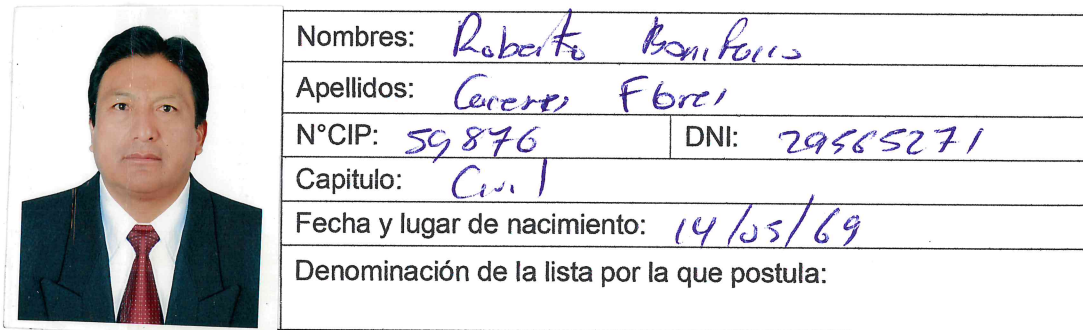 Nombres: Roberto Bonifacio
Apellidos: Caceres Flores
N°CIP: 59876 DNI: 29565271
Capitulo: Civil
Fecha y lugar de nacimiento: 14/05/69
Denominación de la lista por la que postula: